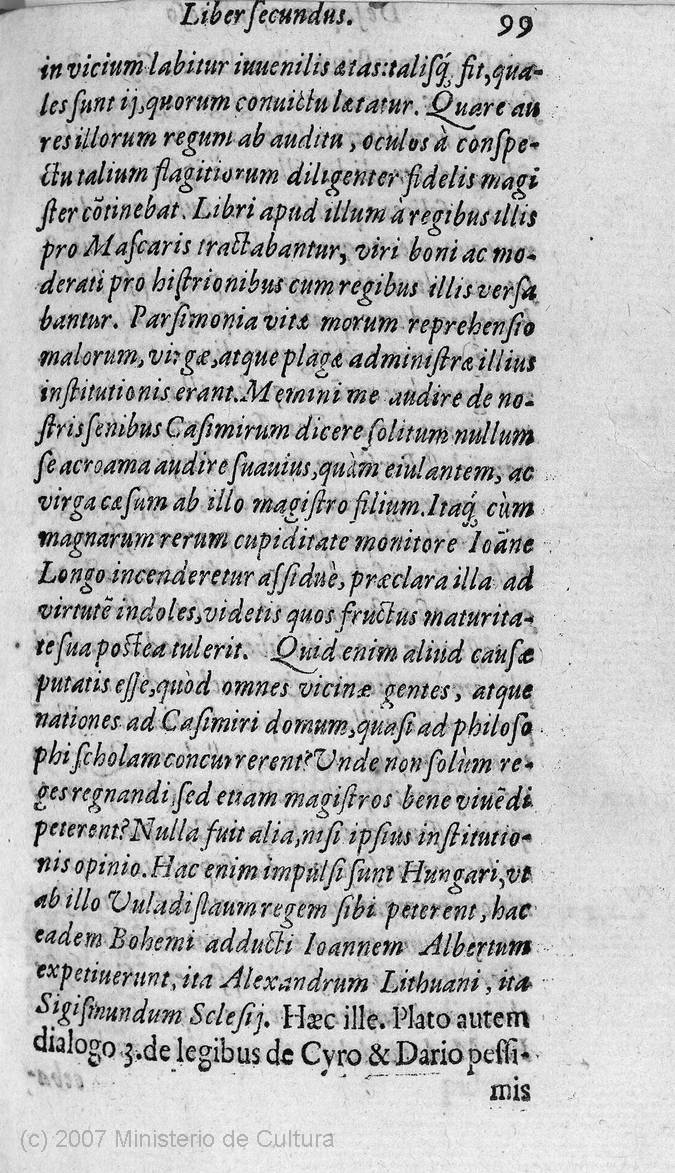 Liber secundus. 99
in vicium labitur iuuenilis ætas: talisq́; fit, qua-
les sunt ij, quorum conuictu lætatur. Quare au
res illorum regum ab auditu, oculos à conspe-
ctu talium flagitiorum diligenter fidelis magi
ster cõtinebat. Libri apud illum à regibus illis
pro Mascaris tractabantur, viri boni ac mo-
derati pro histrionibus cum regibus illis versa
bantur. Parsimonia vitæ morum reprehensio
malorum, virgæ, atque plagæ administræ illius
institutionis erant. Memini me audire de no-
stris senibus Casimirum dicere solitum nullum
se acroama audire suauius, quàm eiulantem, ac
virga cæsum ab illo magistro filium. Itaq́; cùm
magnarum rerum cupiditate monitore Ioãne
Longo incenderetur assiduè, præclara illa ad
virtutẽ indoles, videtis quos fructus maturita-
te sua postea tulerit. Quid enim aliud causæ
putatis esse, quòd omnes vicinæ gentes, atque
nationes ad Casimiri domum, quasi ad philoso
phi scholam concurrerent? Unde non solùm re-
ges regnandi, sed etiam magistros bene viuẽdi
peterent? Nulla fuit alia, nisi ipsius institutio-
nis opinio. Hac enim impulsi sunt Hungari, vt
ab illo Vuladislaum regem sibi peterent, hac
eadem Bohemi adducti Ioannem Albertum
expetiuerunt, ita Alexandrum Lithuani, ita
Sigismundum Sclesij. Hæc ille. Plato autem
dialogo 3. de legibus de Cyro & Dario pessi-
mis
(c) 2007 Ministerio de Cultura